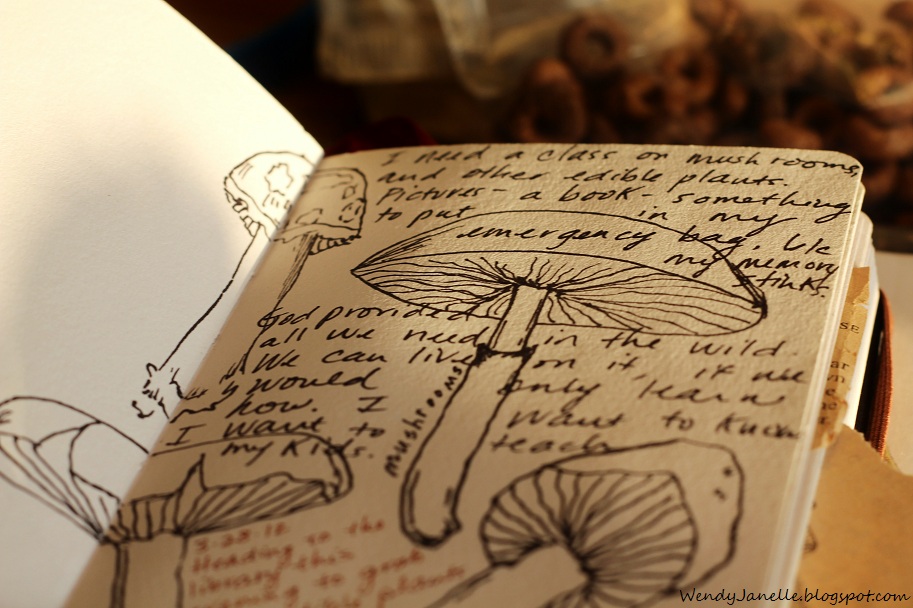 I need a class on mushrooms,
and other edible plants.
Pictures - a book - something
to put in my
emergency bag. b/c
my memory
stinks.
God provided
all we need in the wild.
We can live on it, if we
would only learn
how. I want to know
I want to teach
my kids.
mushrooms
3-28-12
Heading to the
library this
going to grab
plants
SE
WendyJanelle.blogspot.com